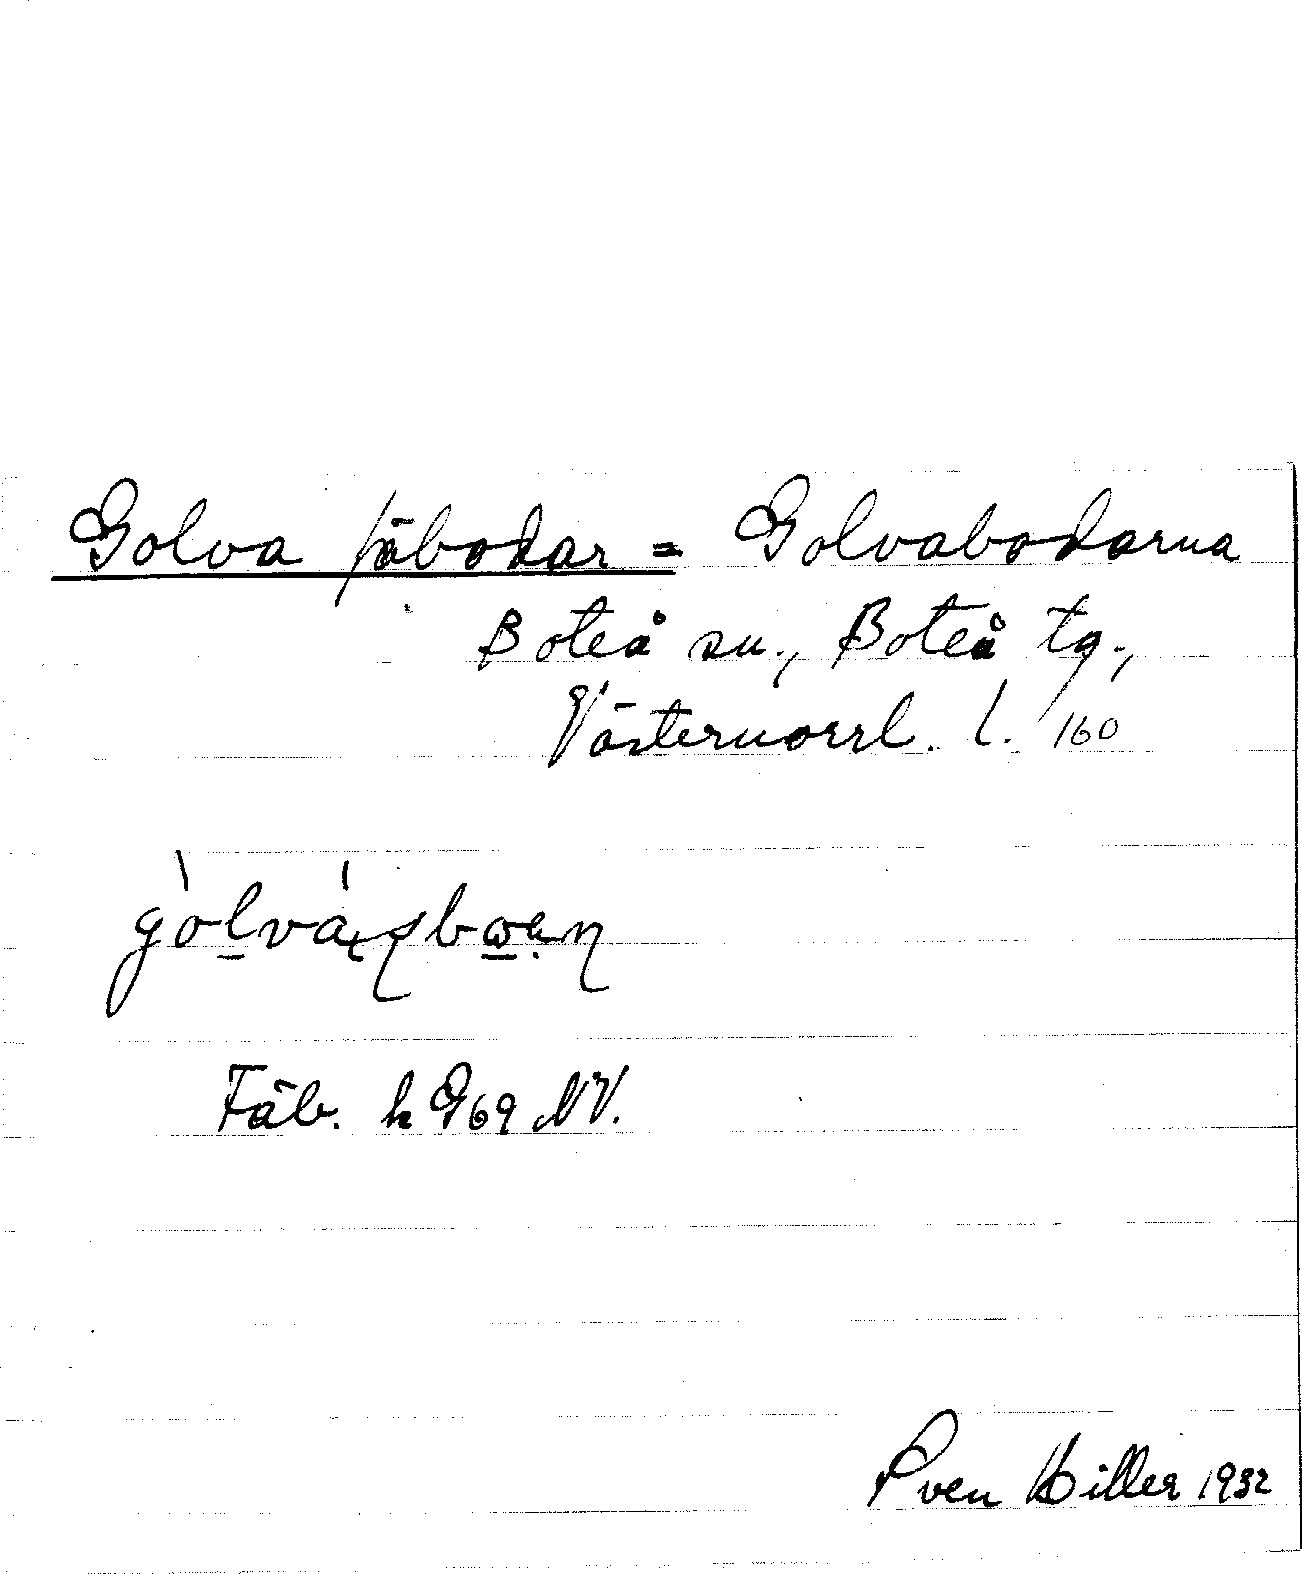 Golva fäbodar = Golvabodarna
Boteå sn., Boteå tg.,
Västernorrl. l. 160
Fäb. k G69 NV.
Sven Hiller 1932